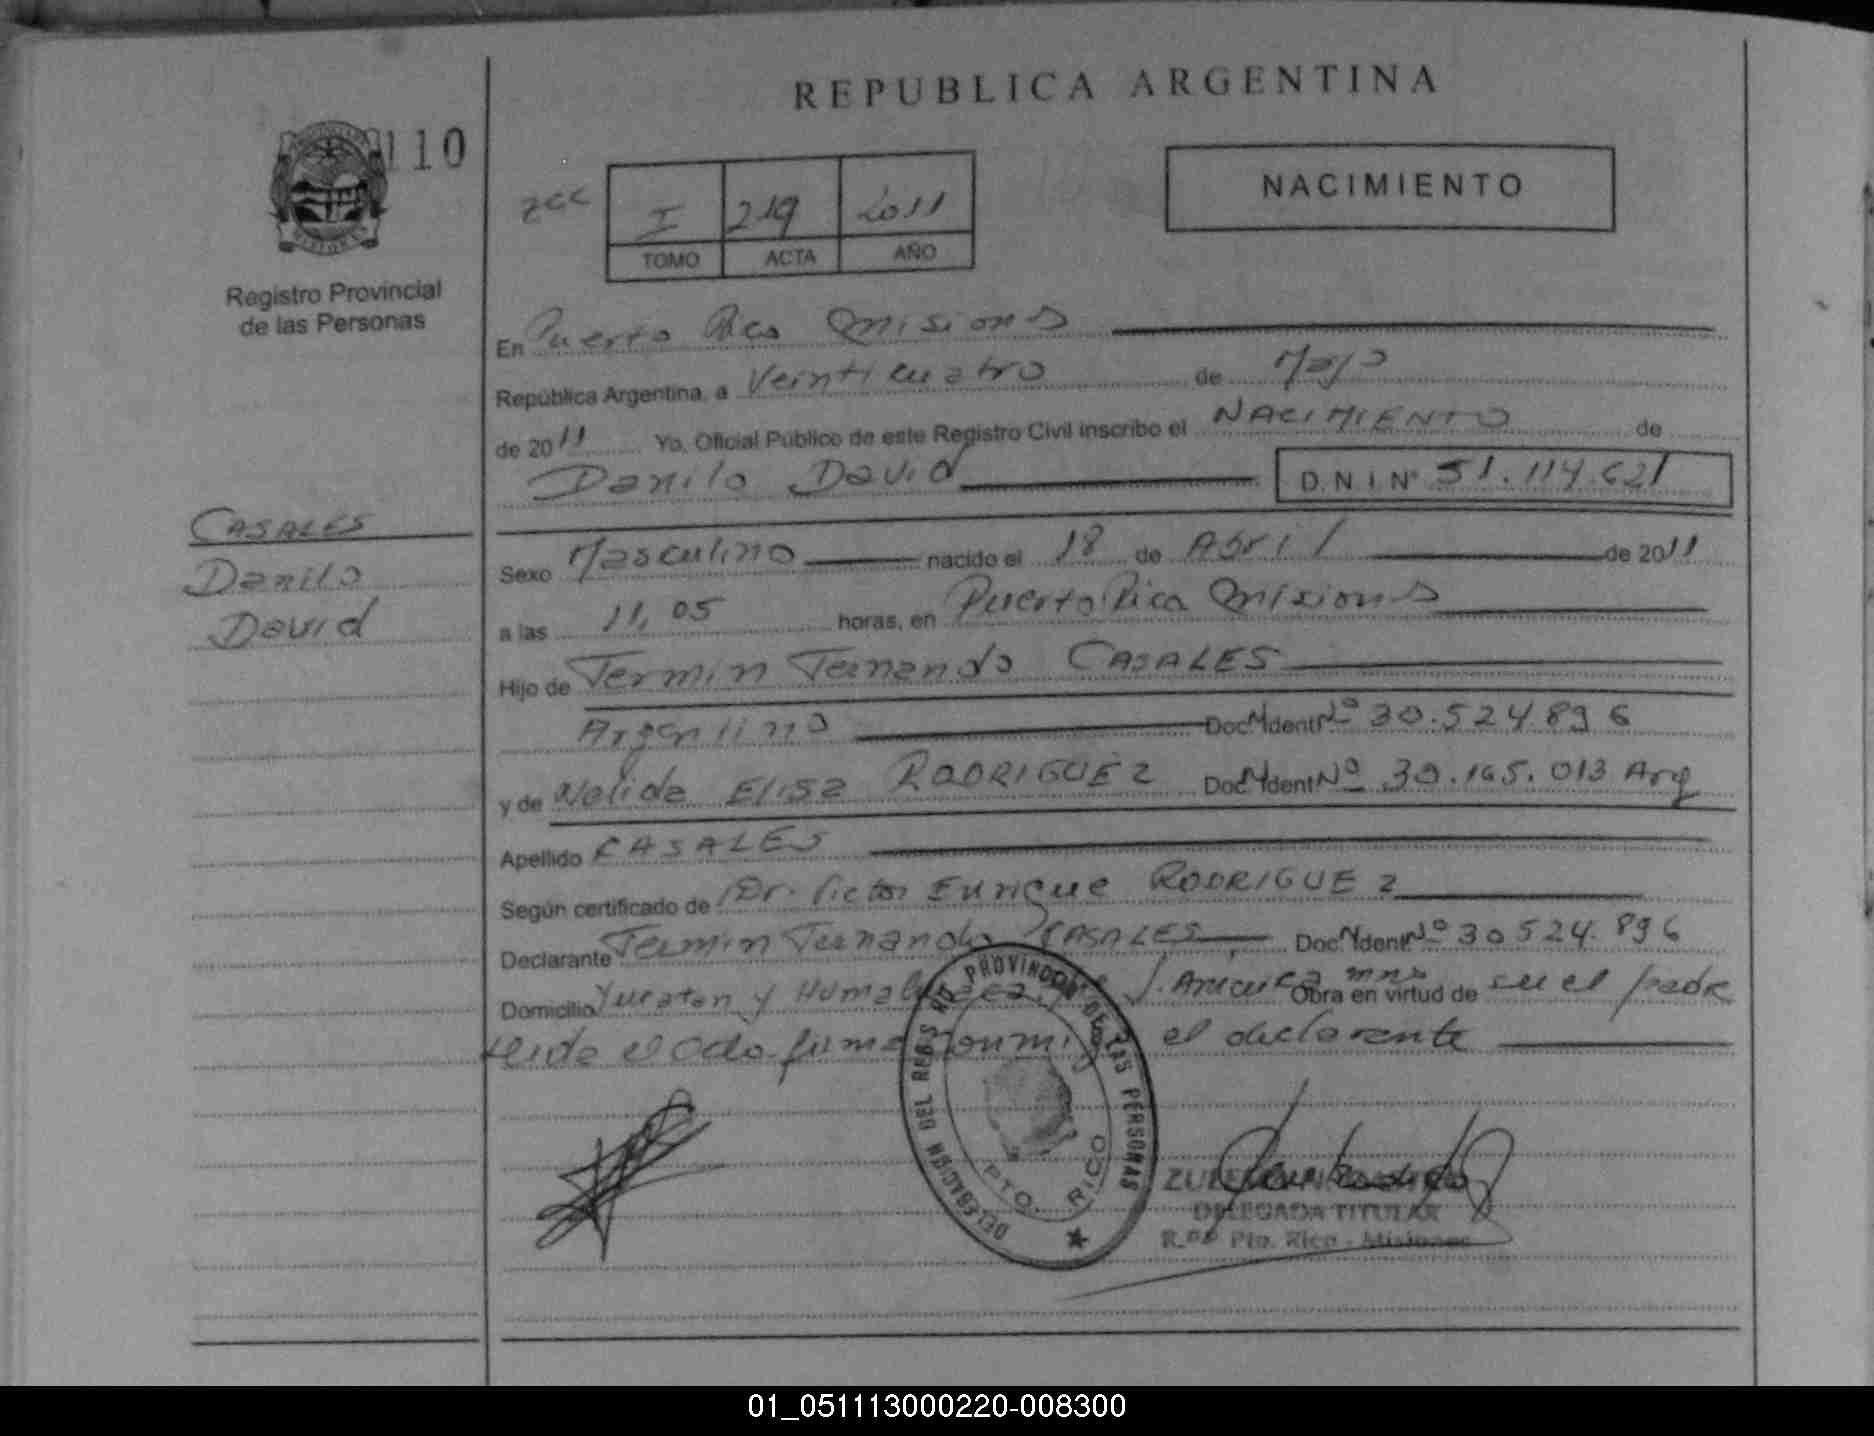 REPUBLICA ARGENTINA
110
NACIMIENTO
I 219 2011
TOMO ACTA AÑO
Registro Provincial
de las Personas
En Puerto Rico Misiones
República Argentina, a Veinticuatro de Mayo
de 2011 Yo, Oficial Público de este Registro Civil inscribo el NACIMIENTO de
Danilo David D.N.I.Nº 51.114.621
CASALES
Danilo
David
Sexo Masculino nacido el 18 de Abril de 2011
a las 11,05 horas, en Puerto Rico Misiones
Hijo de Fermin Fernando CASALES
Argentino Doc. Ident. Nº 30.524.896
y de Nelida Elisa RODRIGUEZ Doc. Ident. Nº 39.165.013 Arg
Apellido CASALES
Según certificado de Dr. Victor Enrique RODRIGUEZ
Declarante Fermin Fernando CASALES Doc. Ident. Nº 30524.896
Domicilio Yucatan y Obra en virtud de ser el padre
Leida el Acta firma conmigo el declarante
DELEGACION DEL REGISTRO PROVINCIAL DE LAS PERSONAS
PTO. RICO
DELEGADA TITULAR
Pto. Rico - Misiones
01_051113000220-008300